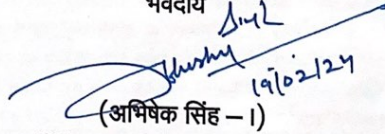 भवदीय
19/02/24
(अभिषेक सिंह – I)